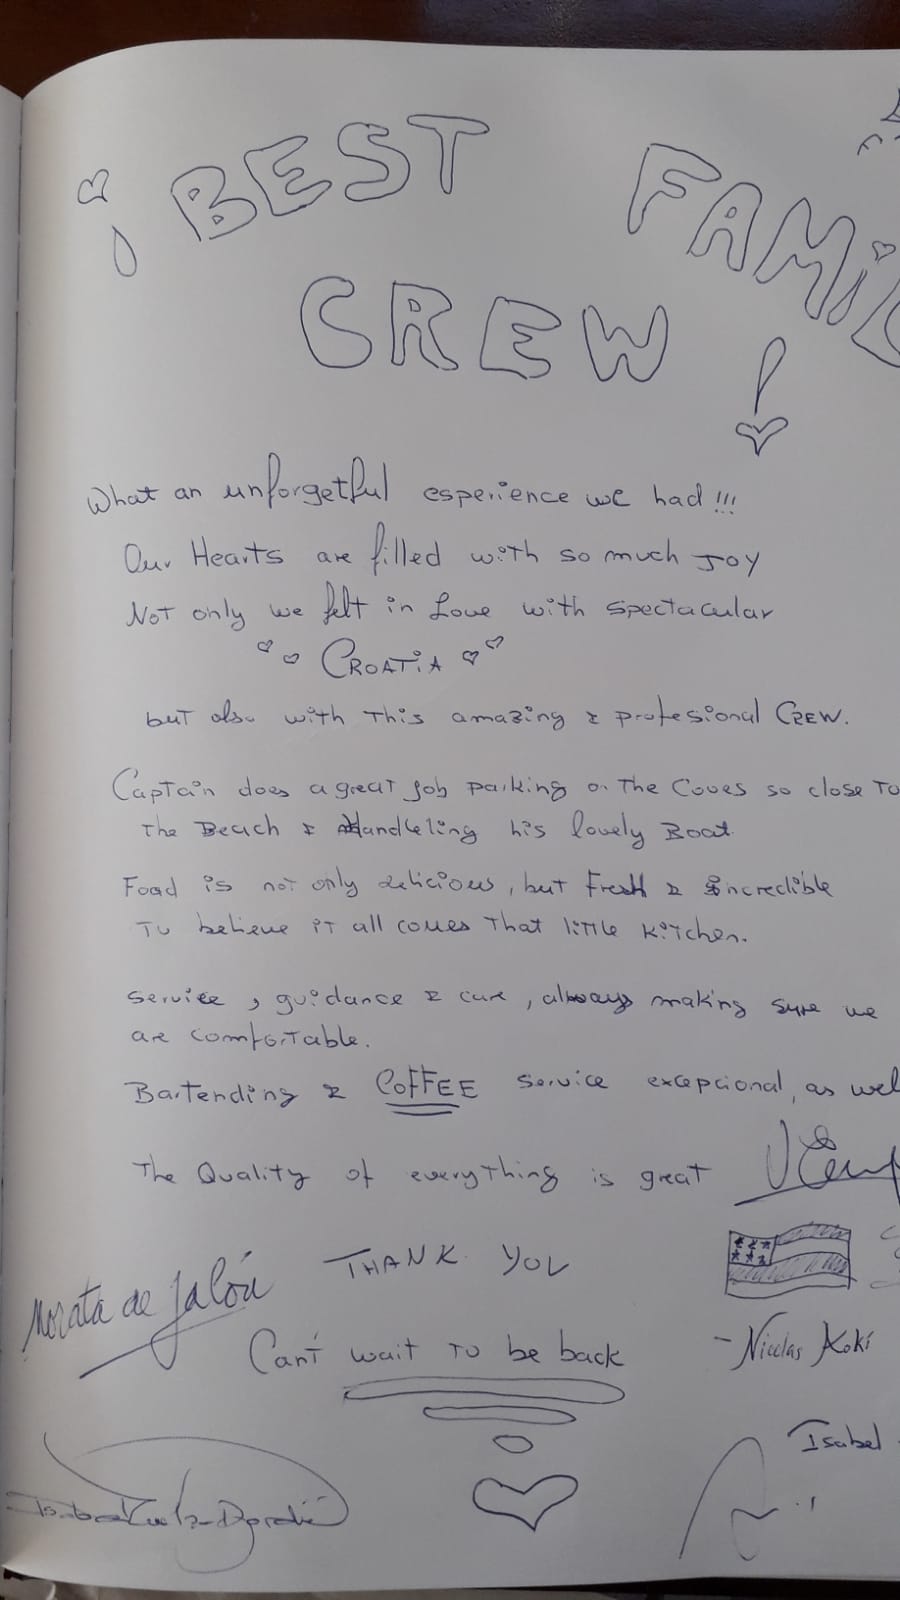 ¡BEST FAMIL
CREW!
What an unforgetful esperience we had!!!
Our Hearts are filled with so much Joy
Not only we felt in Love with spectacular
CROATIA
but also with This amazing & profesional CREW.
Captain does a great Job parking on The Coves so close To
The Beach & Handleling his lovely Boat
Food is not only delicious, but Fresh & incredible
To believe iT all comes That little kitchen.
Service, guidance & care, always making sure we
are comfortable.
Bartending & COFFEE service excepcional, as wel
The Quality of everything is great
THANK YOU
Morata de Jalón
Can't wait To be back
- Nicolas Koki
Isabel